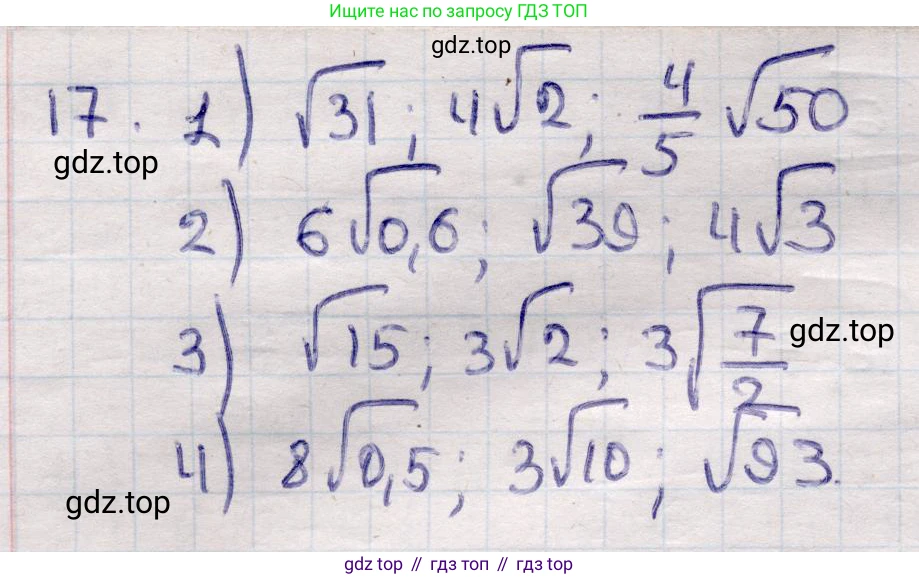 Ищите нас по запросу ГДЗ ТОП
gdz.top
17. 1) √31; 4√2; 4/5 √50
gdz.top
2) 6√0,6; √39; 4√3
3) √15; 3√2; 3√7/2
gdz.top
4) 8√0,5; 3√10; √93.
gdz.top
gdz top // гдз топ // gdz top